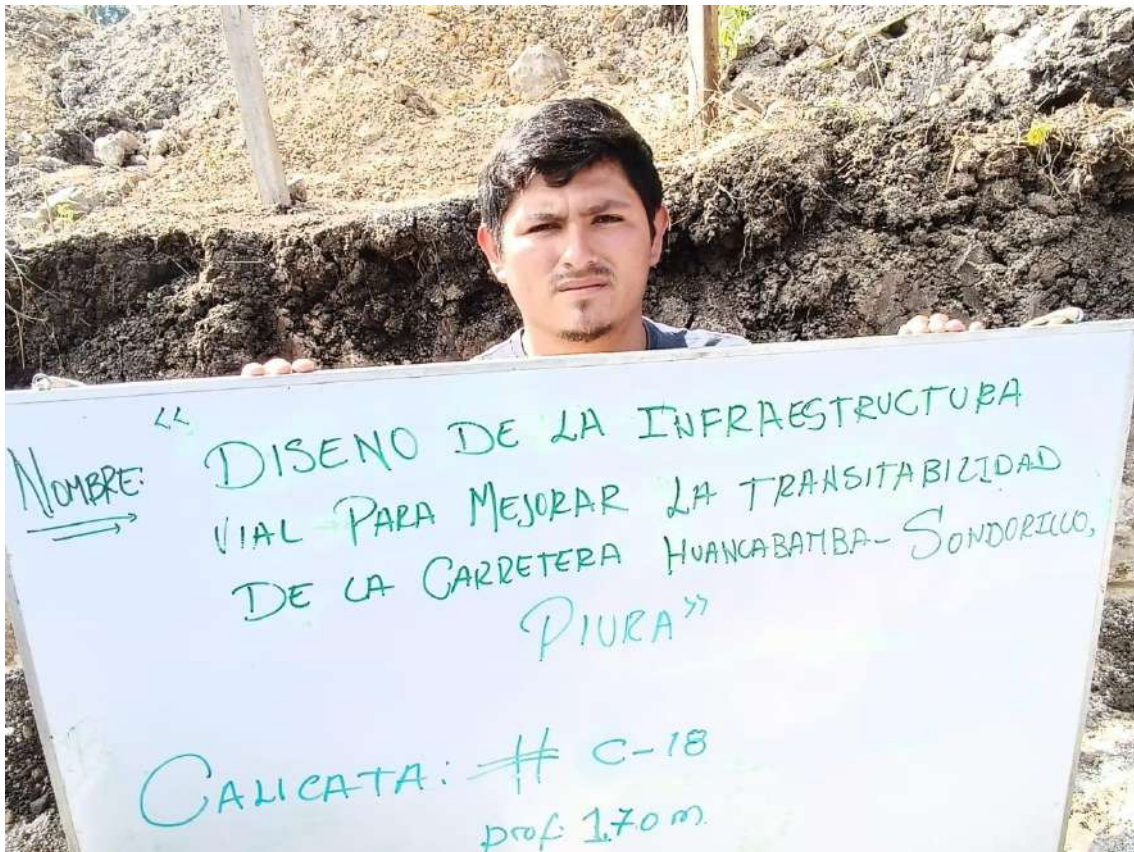 NOMBRE: "DISENO DE LA INFRAESTRUCTURA
VIAL PARA MEJORAR LA TRANSITABILIDAD
DE LA CARRETERA HUANCABAMBA-SONDORILLO,
PIURA"
CALICATA: # C-18
prof: 1.70 m.